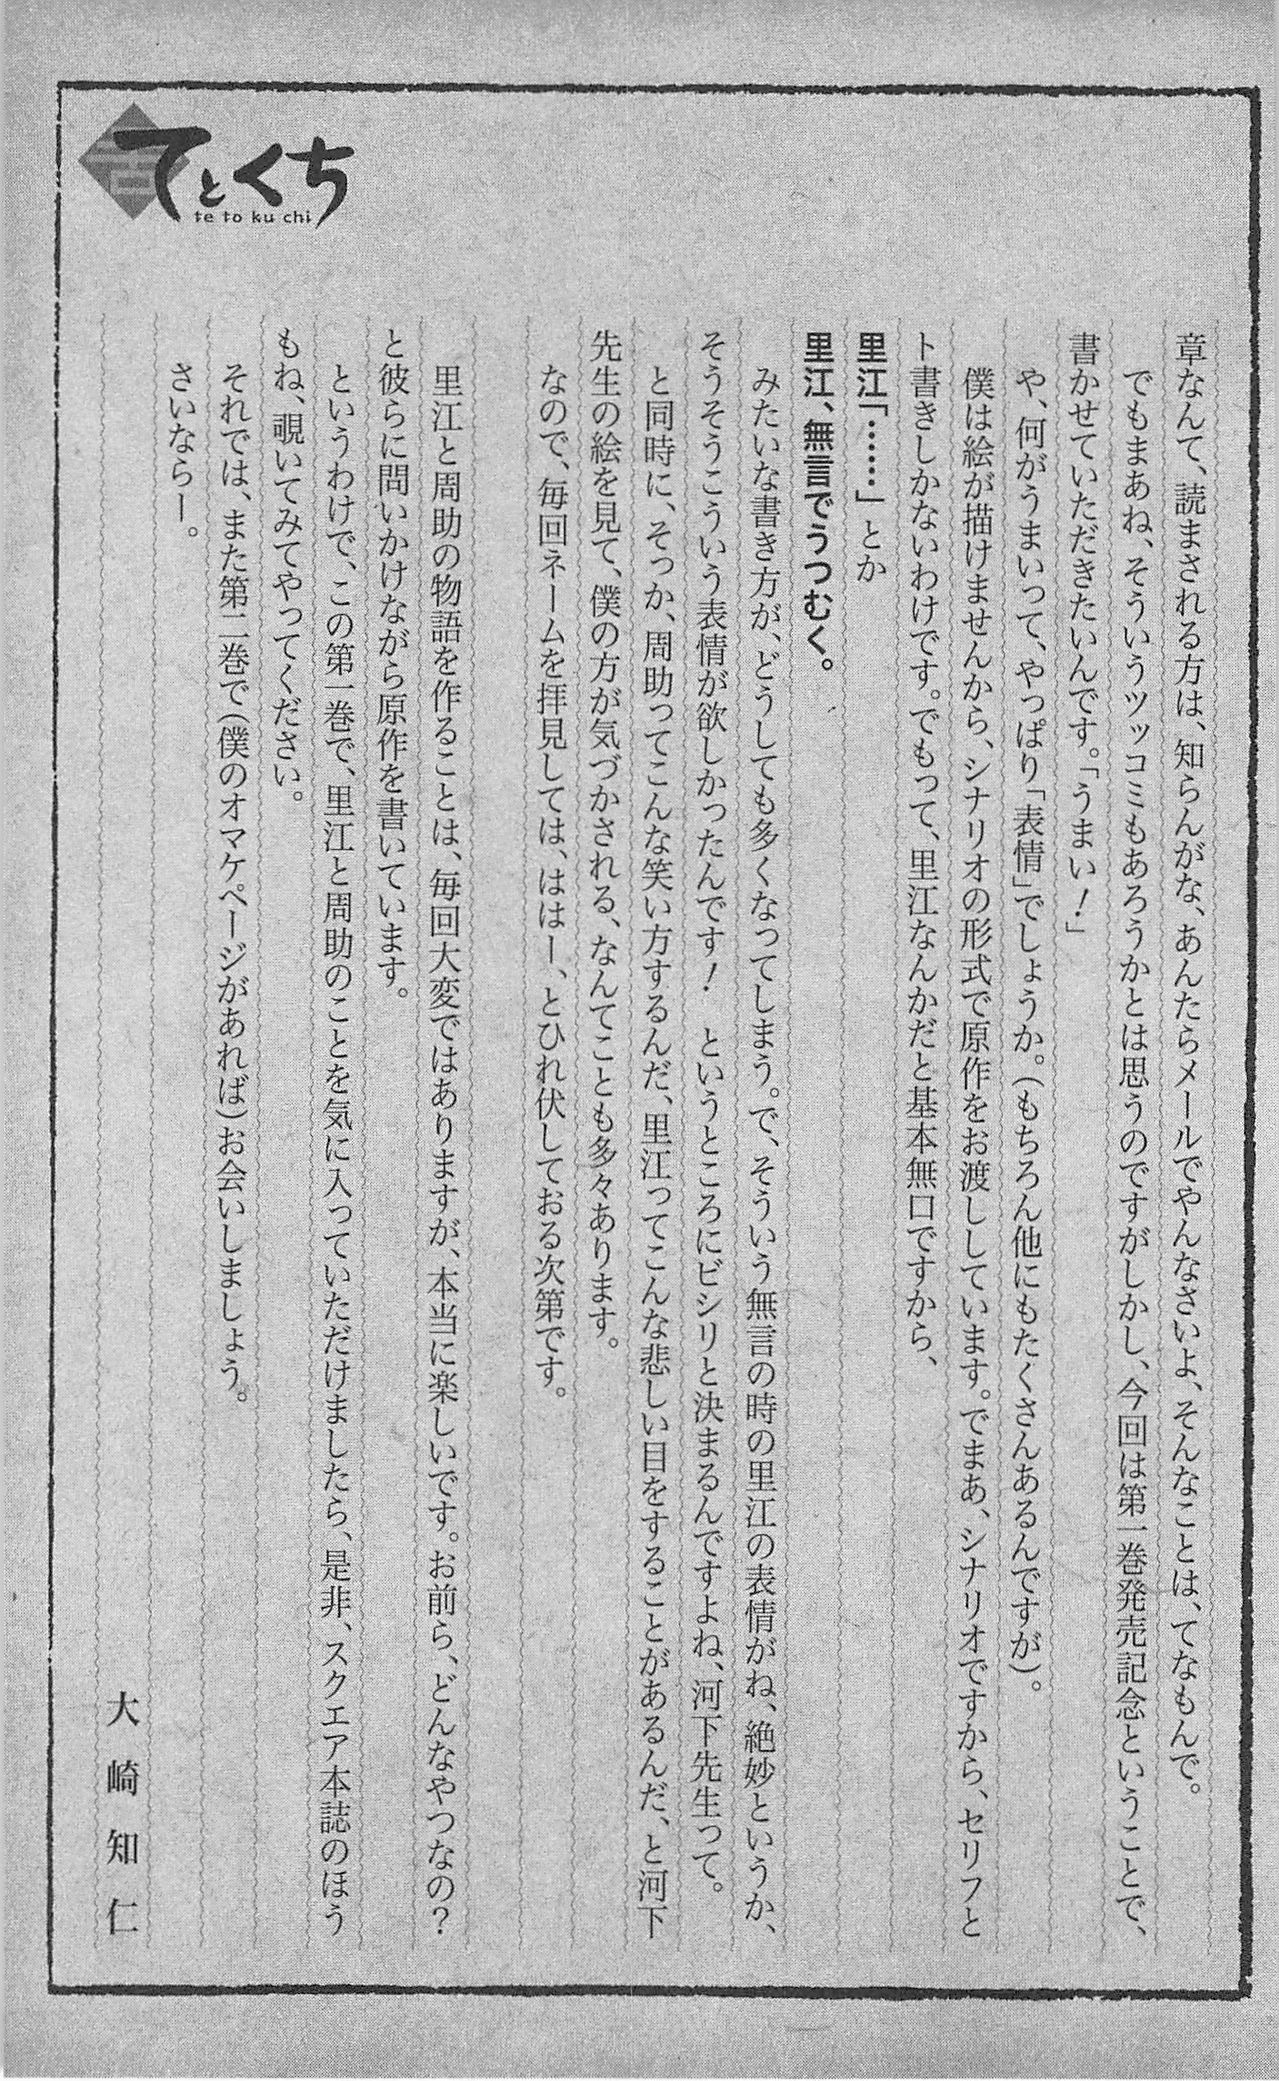 章なんて、読まされる方は、知らんがな、あんたらメールでやんなさいよ、そんなことは、てなもんで。
でもまあね、そういうツッコミもあろうかとは思うのですがしかし、今回は第一巻発売記念ということで、
書かせていただきたいんです。「うまい！」
や、何がうまいって、やっぱり「表情」でしょうか。（もちろん他にもたくさんあるんですが）。
僕は絵が描けませんから、シナリオの形式で原作をお渡ししています。でまあ、シナリオですから、セリフと
ト書きしかないわけです。でもって、里江なんかだと基本無口ですから、
里江「……」とか
里江、無言でうつむく。
みたいな書き方が、どうしても多くなってしまう。で、そういう無言の時の里江の表情がね、絶妙というか、
そうそうこういう表情が欲しかったんです！　というところにビシリと決まるんですよね、河下先生って。
と同時に、そっか、周助ってこんな笑い方するんだ、里江ってこんな悲しい目をすることがあるんだ、と河下
先生の絵を見て、僕の方が気づかされる、なんてことも多々あります。
なので、毎回ネームを拝見しては、ははー、とひれ伏しておる次第です。
里江と周助の物語を作ることは、毎回大変ではありますが、本当に楽しいです。お前ら、どんなやつなの？
と彼らに問いかけながら原作を書いています。
というわけで、この第一巻で、里江と周助のことを気に入っていただけましたら、是非、スクエア本誌のほう
もね、覗いてみてやってください。
それでは、また第二巻で（僕のオマケページがあれば）お会いしましょう。
さいならー。
大崎知仁
てとくち
te to ku chi